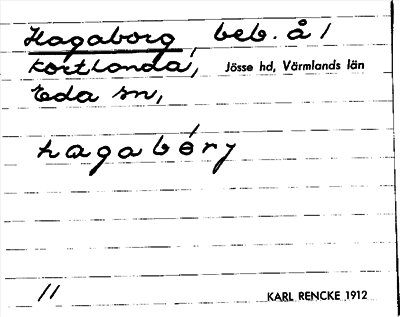 Hagaborg beb. å /
Köttlanda, Jösse hd, Värmlands län
Eda sn,
hagabérj
11
KARL RENCKE 1912